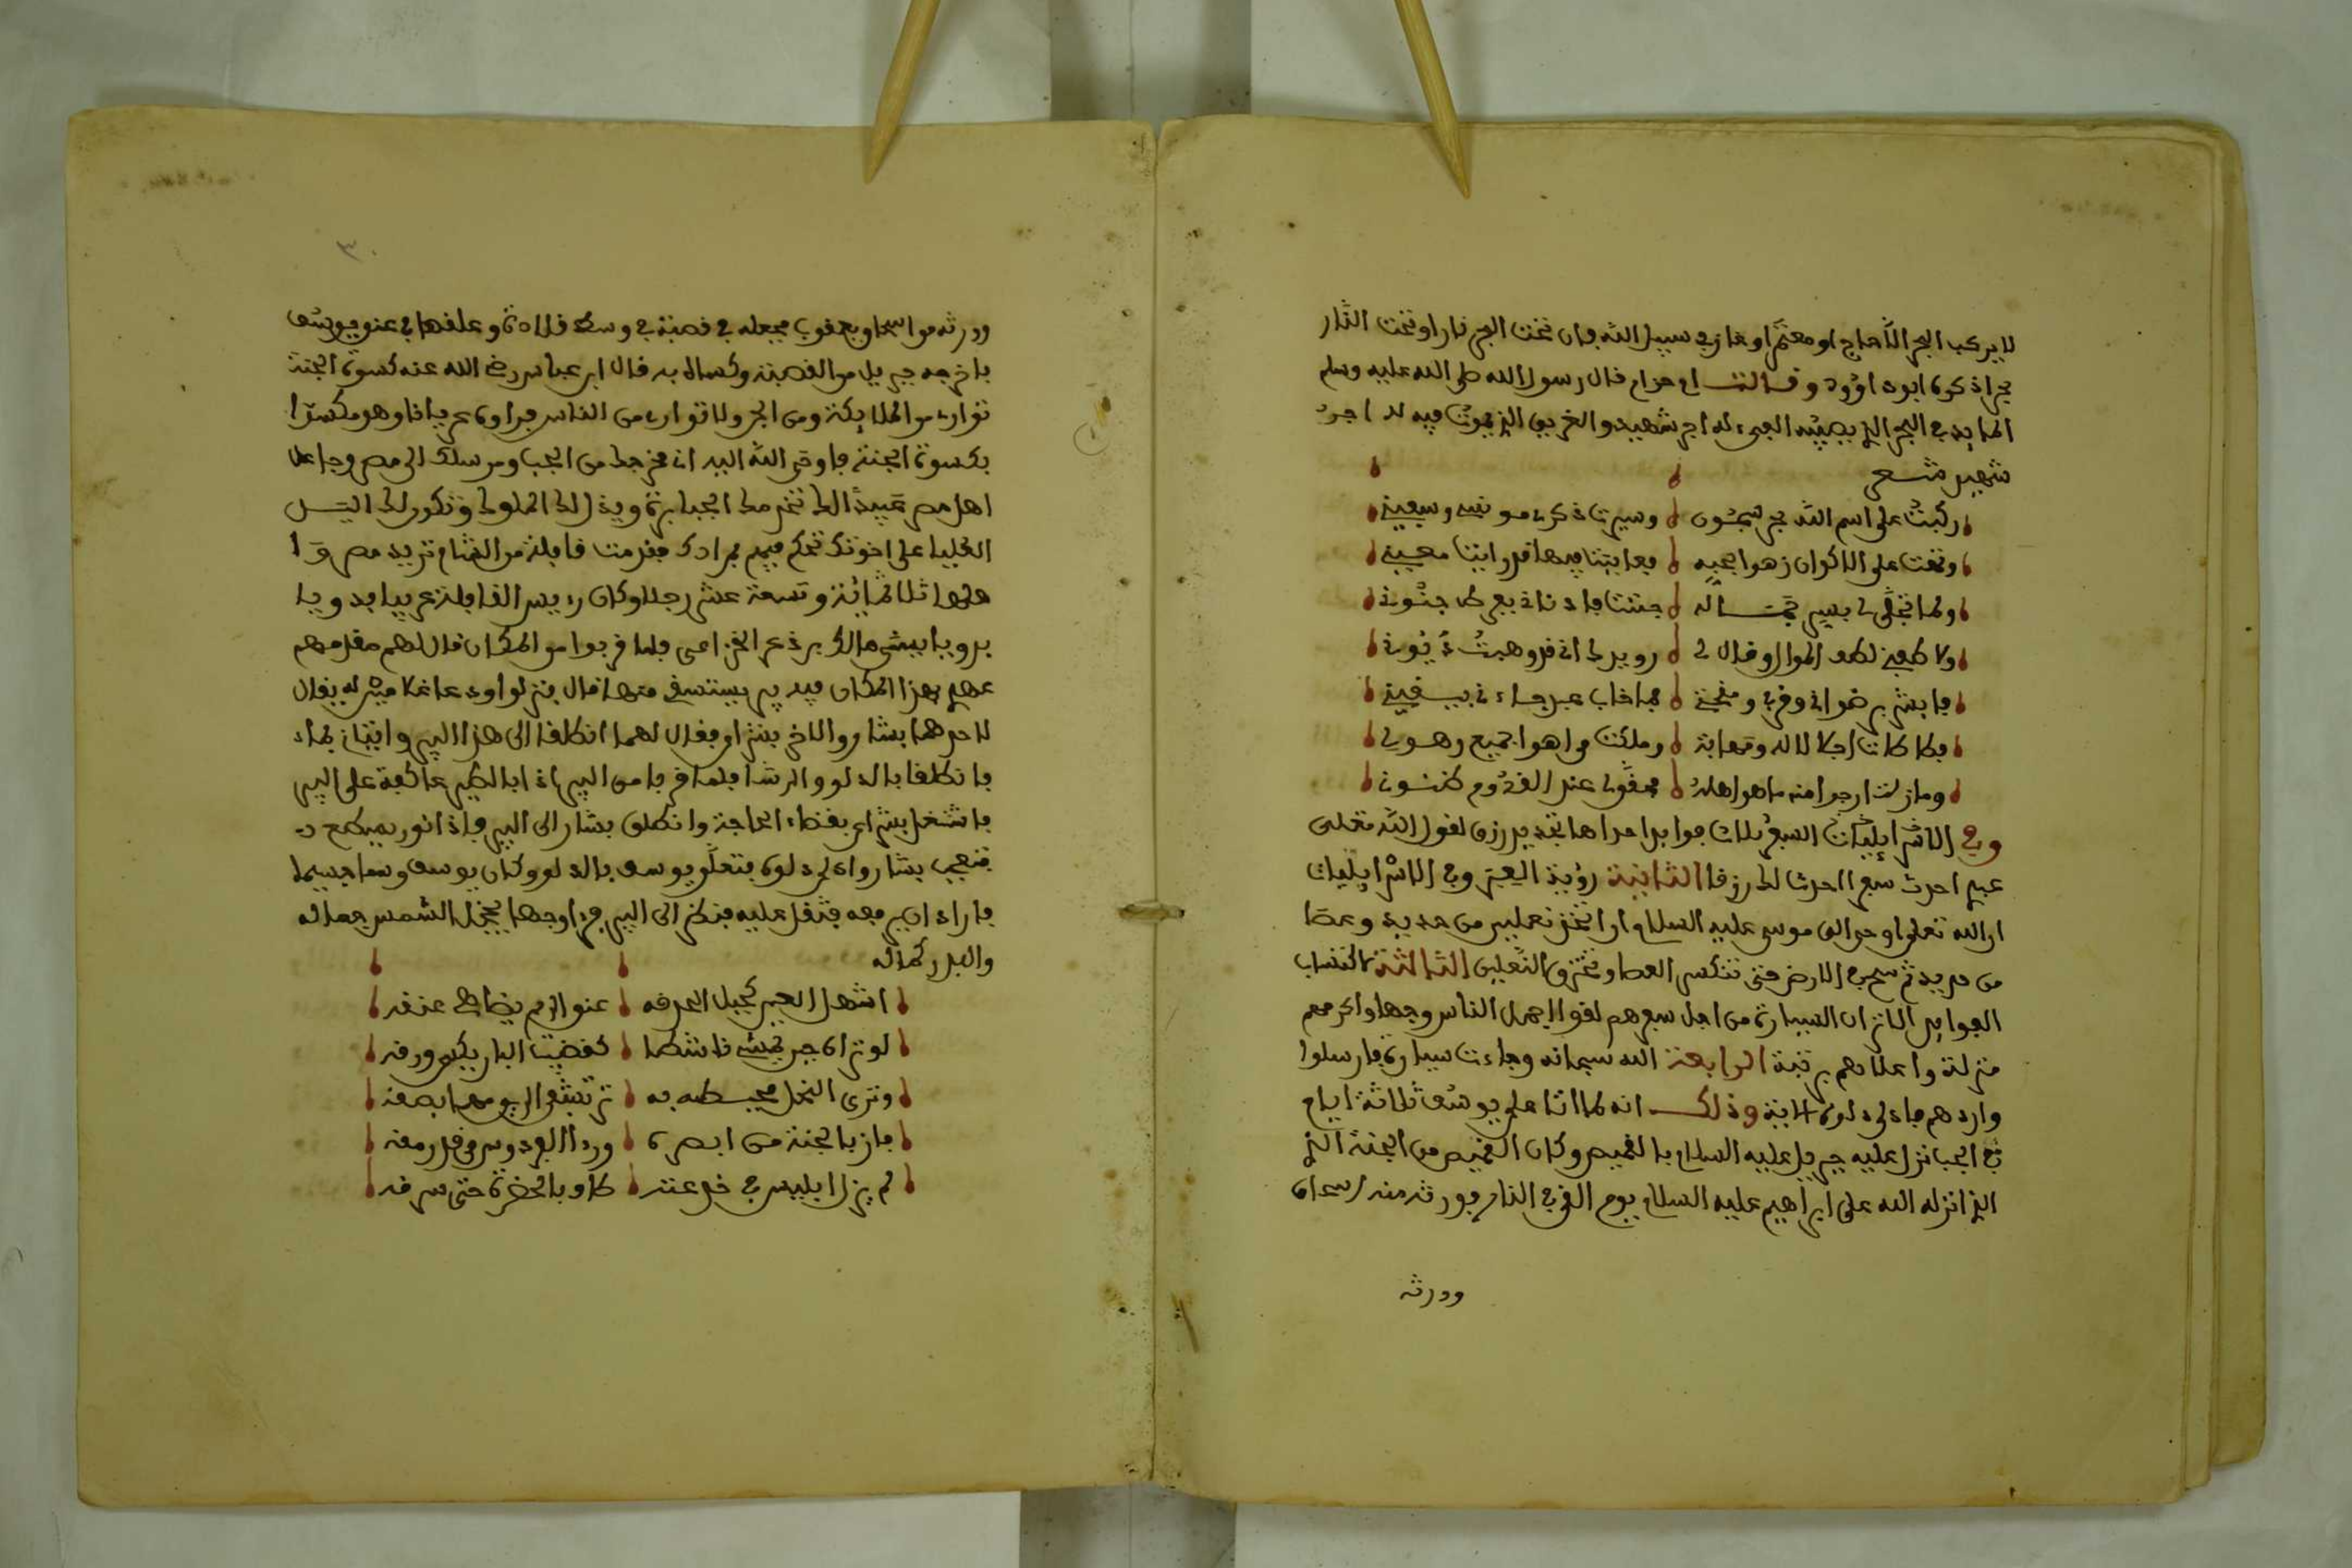 لا يركب البحر الا حاج او معتمر او غاز في سبيل الله فان تحت البحر نارا وتحت النار
بحرا ذكره ابو داوود وقالت ام حرام قال رسول الله صلى الله عليه وسلم
المايد في البحر الذي يصيبه القيء له اجر شهيد والغريق الذي يموت فيه له اجر
شهيد شعر
ركبت على اسم الله بحر شجون وسيرت ذكره مونسي وسفيني
وتهت على الاكوان زهوا بحبه
ولما تجلى لي بسر جماله جننت فاد ناني بفرط جنوني
ولاطفني لطف الموالي وقال لي رويدك اني قد وهبت ديوني
فابشر برضواني وقربي ومنحتي فما خاب عبد جاءني بيقيني
فطاطات اجلالا له ومهابة وملكت من اهوى جميع رهوني
وما زلت ارجو منه ما هو اهله
وفي الاسرائيليات السفر ثلاث فوايد احداها تجديد رزق لقول الله تعلى
عبدي احدث سفرا احدث لك رزقا الثانية رؤية العبر وفي الاسرائيليات
ان الله تعلى اوحى الى موسى عليه السلام ان اتخذ نعلين من حديد وعصا
من حديد ثم سح في الارض حتى تنكسر العصا وتخترق النعلين الثالثة اكتساب
الفوايد الا ترى ان السيارة من اجل سفرهم لقوا اجمل الناس وجها واكرمهم
منزلة واعلاهم رتبة الرابعة الله سبحانه وجاءت سيارة فارسلوا
واردهم فادلى دلوه الاية وذلك انه لما اتا على يوسف ثلاثة ايام
في الجب نزل عليه جبريل عليه السلام بالقميص وكان القميص من الجنة الذي
الذي انزله الله على ابراهيم عليه السلام يوم القي في النار فورثه منه اسحاق
وورثه
٣٠
وورثه من اسحاق يعقوب فجعله في قصبة في وسط قلادة وعلقها في عنق يوسف
فاخرجه جبريل من القصبة وكساه به قال ابن عباس رضي الله عنه كسوة الجنة
توارى من الملايكة ومن الجن ولا توارى من الناس فراوه عريانا وهو مكسوا
بكسوة الجنة فاوحى الله اليه اني مخرجك من الجب ومرسلك الى مصر وجاعل
اهل مصر عبيدا لك تخدمك الجبابرة ويذل لك الملوك وتكون لك اليد
العليا على اخوتك تحكم فيهم بمرادك فقدمت قافلة من الشام تريد مصر
ثلاثمائة وتسعة عشر رجلا وكان رءيس القافلة عربيا بدويا
بدويا يسمى مالك بن ذعر الخزاعي فلما قربوا من المكان قال لهم مقدمهم
عهدي بهذا المكان فيه بير يستسقى منها قال
لاحدهما بشار والاخر بشرا فقال لهما انطلقا الى هذا البير واتياني بماء
فانطلقا بالدلو والرشا فلما قربا من البير اذا بالطير عاكفة على البير
فاشتغل بشرا بقضاء الحاجة وانطلق بشار الى البير فاذا نور يسطع
فتعجب بشار وادلى دلوه فتعلق يوسف بالدلو وكان يوسف وسما جسيما
فاراد ان يرفعه فثقل عليه فنظر الى البير فراى وجها يخجل الشمس جماله
والبدر كماله
اشهل العين كحيل الحدقه
لو تراه حين يمشي قاشطا كقضيب البان يكسو ورقه
وترى النحل
فاز بالجنة من ابصره ورءا الفردوس من قد رمقه
لم يزل ابليس في خدعته طاف بالحضرة حتى سرقه